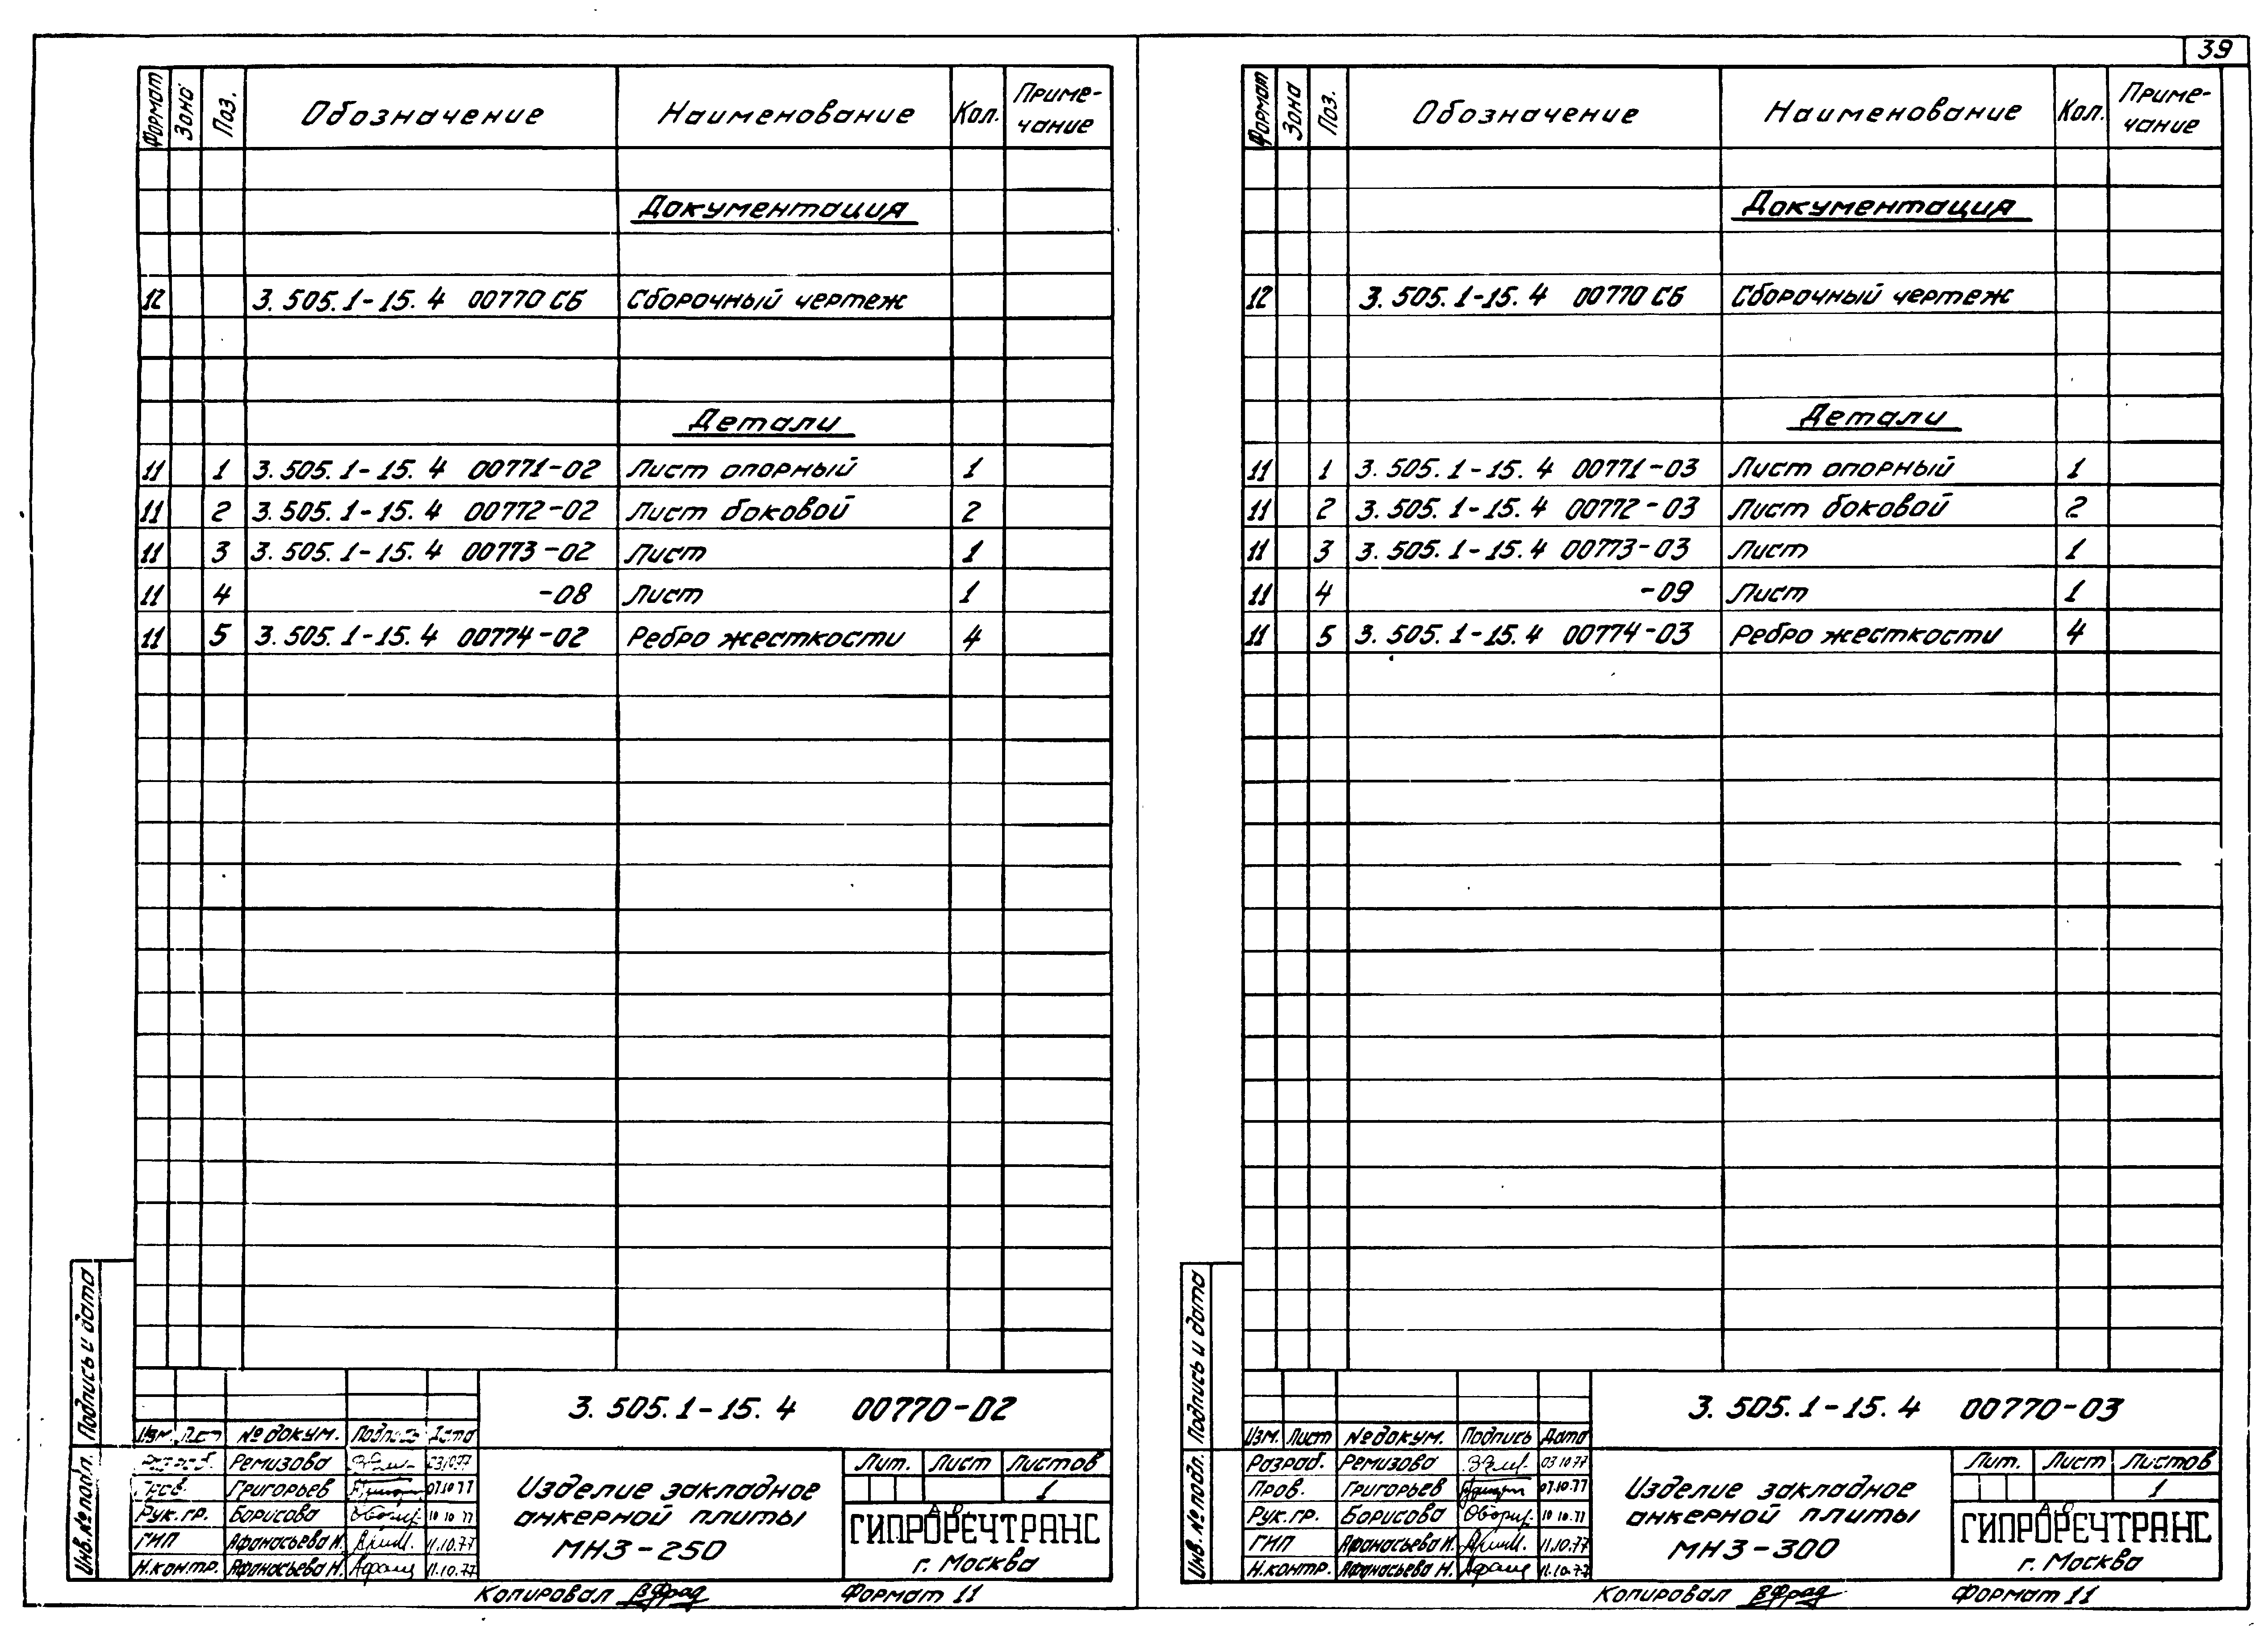 39
Формат Зона Поз. Обозначение Наименование Кол. Приме-
чание
Документация
12 3.505.1-15.4 00770 СБ Сборочный чертеж
Детали
11 1 3.505.1-15.4 00771-02 Лист опорный 1
11 2 3.505.1-15.4 00772-02 Лист боковой 2
11 3 3.505.1-15.4 00773-02 Лист 1
11 4 -08 Лист 1
11 5 3.505.1-15.4 00774-02 Ребро жесткости 4
Подпись и дата
Инв. № подл.
3.505.1-15.4 00770-02
Изм. Лист № докум. Подпись Дата
Разраб. Ремизова 03.10.77
Пров. Григорьев 07.10.77
Рук.гр. Борисова 10 10 77
ГИП Афанасьева Н. 11.10.77
Н.контр. Афанасьева Н. 11.10.77
Изделие закладное
анкерной плиты
МН3-250
Лит. Лист Листов
1
ГИПРОРЕЧТРАНС
г. Москва
Копировал Формат 11
Формат Зона Поз. Обозначение Наименование Кол. Приме-
чание
Документация
12 3.505.1-15.4 00770 СБ Сборочный чертеж
Детали
11 1 3.505.1-15.4 00771-03 Лист опорный 1
11 2 3.505.1-15.4 00772-03 Лист боковой 2
11 3 3.505.1-15.4 00773-03 Лист 1
11 4 -09 Лист 1
11 5 3.505.1-15.4 00774-03 Ребро жесткости 4
Подпись и дата
Инв. № подл.
3.505.1-15.4 00770-03
Изм. Лист № докум. Подпись Дата
Разраб. Ремизова 03.10.77
Пров. Григорьев 07.10.77
Рук.гр. Борисова 10 10.77
ГИП Афанасьева Н. 11.10.77
Н.контр. Афанасьева Н. 11.10.77
Изделие закладное
анкерной плиты
МН3-300
Лит. Лист Листов
1
ГИПРОРЕЧТРАНС
г. Москва
Копировал Формат 11